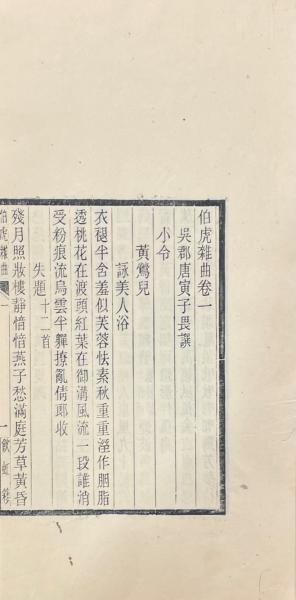 伯虎雜曲卷一
吳郡唐寅子畏譔
小令
黃鶯兒
詠美人浴
衣褪半含羞似芙蓉怯素秋重重溼作胭脂
透桃花在渡頭紅葉在御溝風流一段誰消
受粉痕流烏雲半軃撩亂倩郎收
失題十二首
殘月照妝樓靜愔愔燕子愁滿庭芳草黃昏
伯虎雜曲
一
飲虹簃